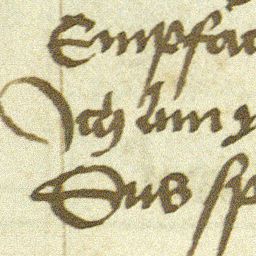 Empfa
Ich bin
Das sp